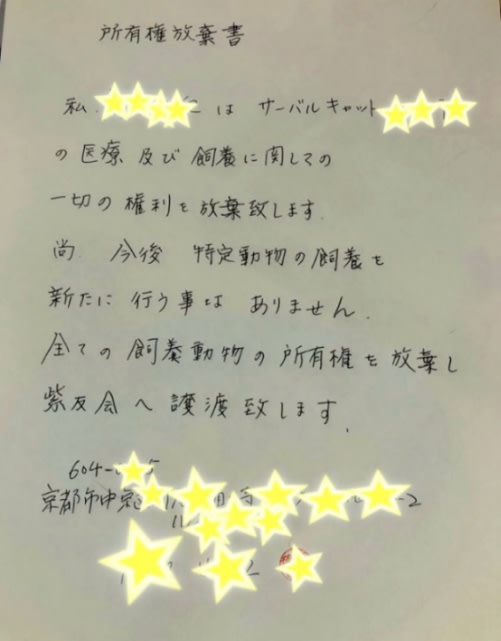 所有権放棄書
私、 は サーバルキャット
の医療及び飼養に関しての
一切の権利を放棄致します。
尚、今後 特定動物の飼養を
新たに行う事は ありません。
全ての飼養動物の所有権を放棄し
紫友会へ譲渡致します。
604-
京都市中京